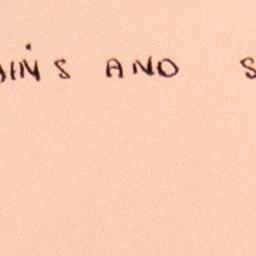 AINS AND S